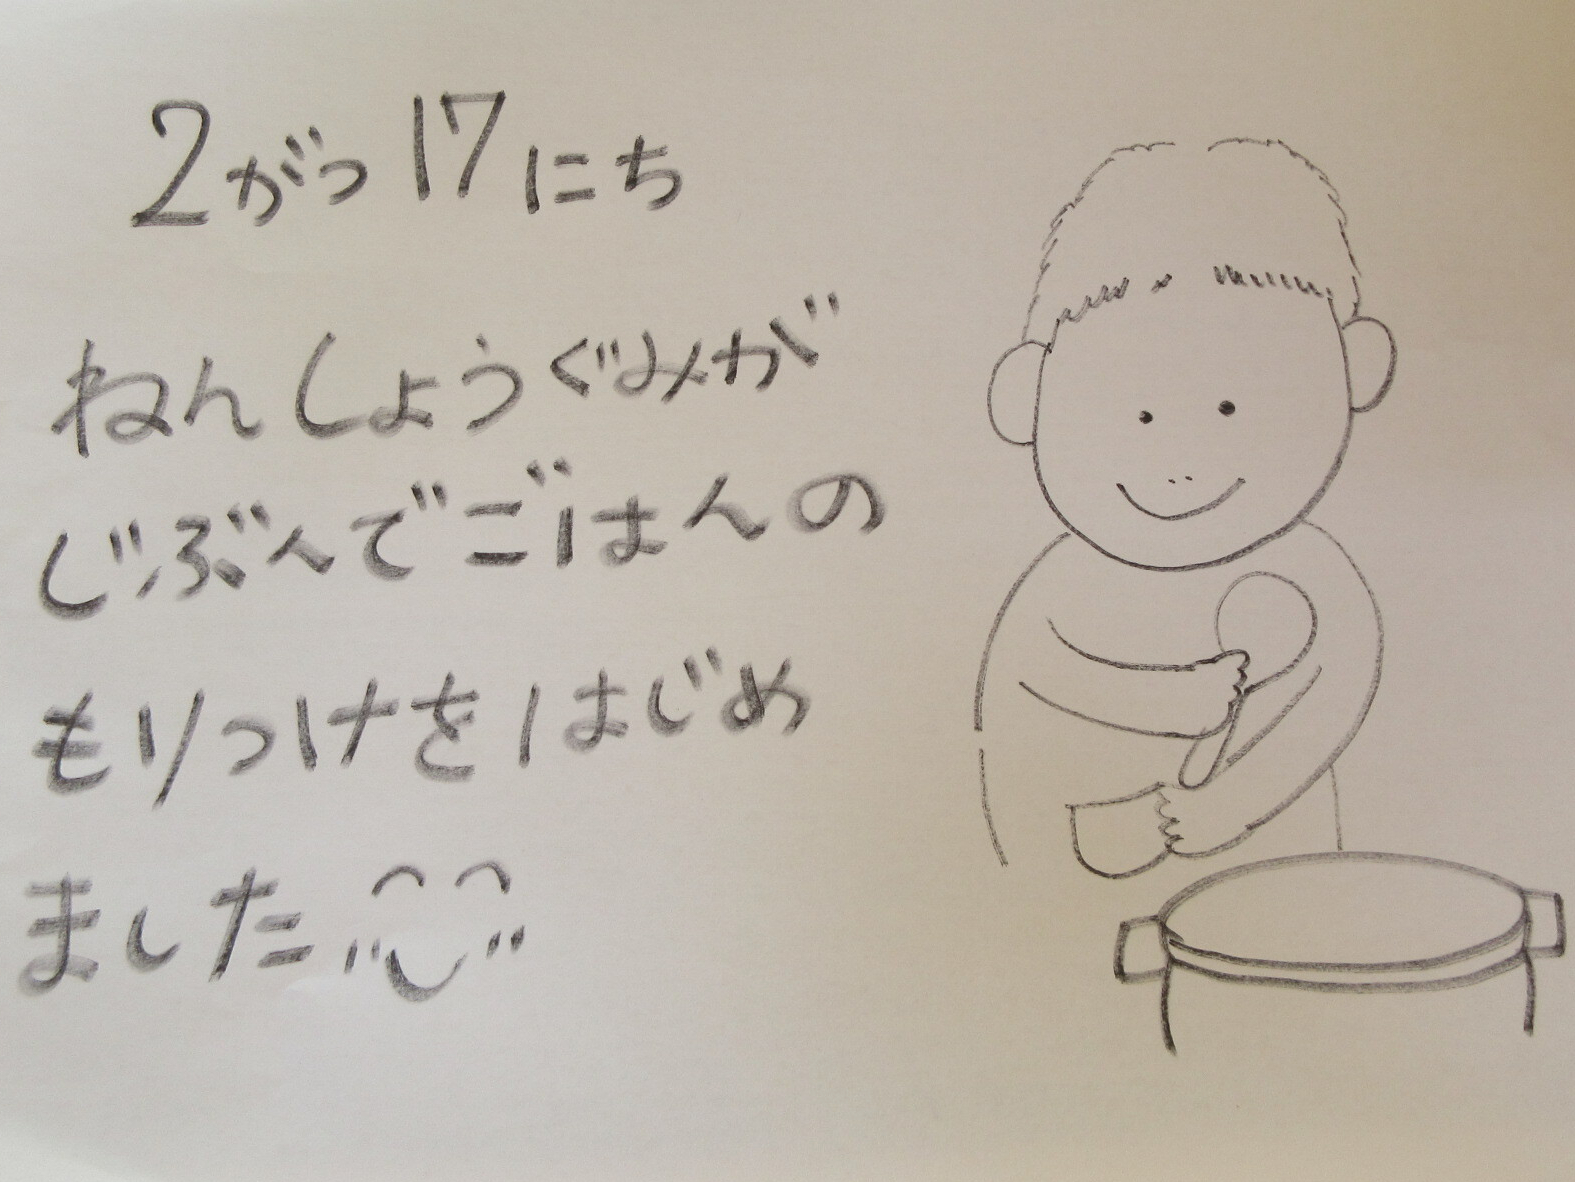 2がつ17にち
ねんしょうぐみが
じぶんでごはんの
もりつけをはじめ
ました